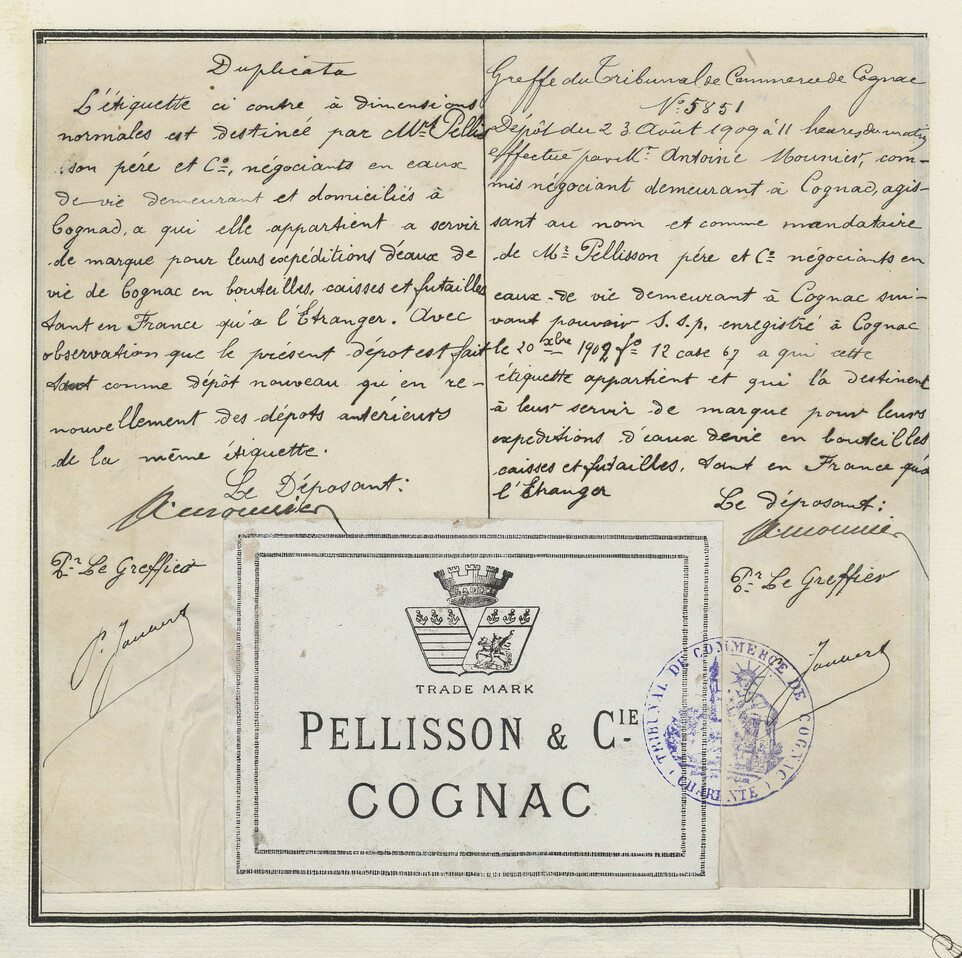 Duplicata
L'étiquette ci contre à dimensions
normales est destinée par Mrs Pellis
son pére et Co, négociants en eaux
de vie demeurant et domiciliés à
Cognac, a qui elle appartient a servir
de marque pour leurs expéditions d'eaux de
vie de Cognac en bouteilles, caisses et futailles
tant en France qu'a l'Etranger. Avec
observation que le présent dépot est fait
tant comme dépôt nouveau qu'en re-
nouvellement des dépots antérieurs
de la même étiquette.
Le Déposant:
Amounier
Pr Le Greffier
P. Jauvert
Greffe du Tribunal de Commerce de Cognac
No 5851
Dépôt du 23 Août 1909 à 11 heures du matin
effectué par Mr Antoine Mounier, com-
mis négociant demeurant à Cognac, agis-
sant au nom et comme mandataire
de Mr Pellisson pére et Co négociants en
eaux-de vie demeurant à Cognac sui-
vant pouvoir S.S.p. enregistré à Cognac
le 20 xbre 1902 fo 12 case 67 a qui cette
étiquette appartient et qui l'a destinent
à leur servir de marque pour leurs
expeditions d'eaux de vie en bouteilles
caisses et futailles, tant en France qu'a
l'Etranger
Le déposant:
Amounier
Pr Le Greffier
Jauvert
TRADE MARK
PELLISSON & CIE
COGNAC
TRIBUNAL DE COMMERCE DE COGNAC
(CHARENTE)